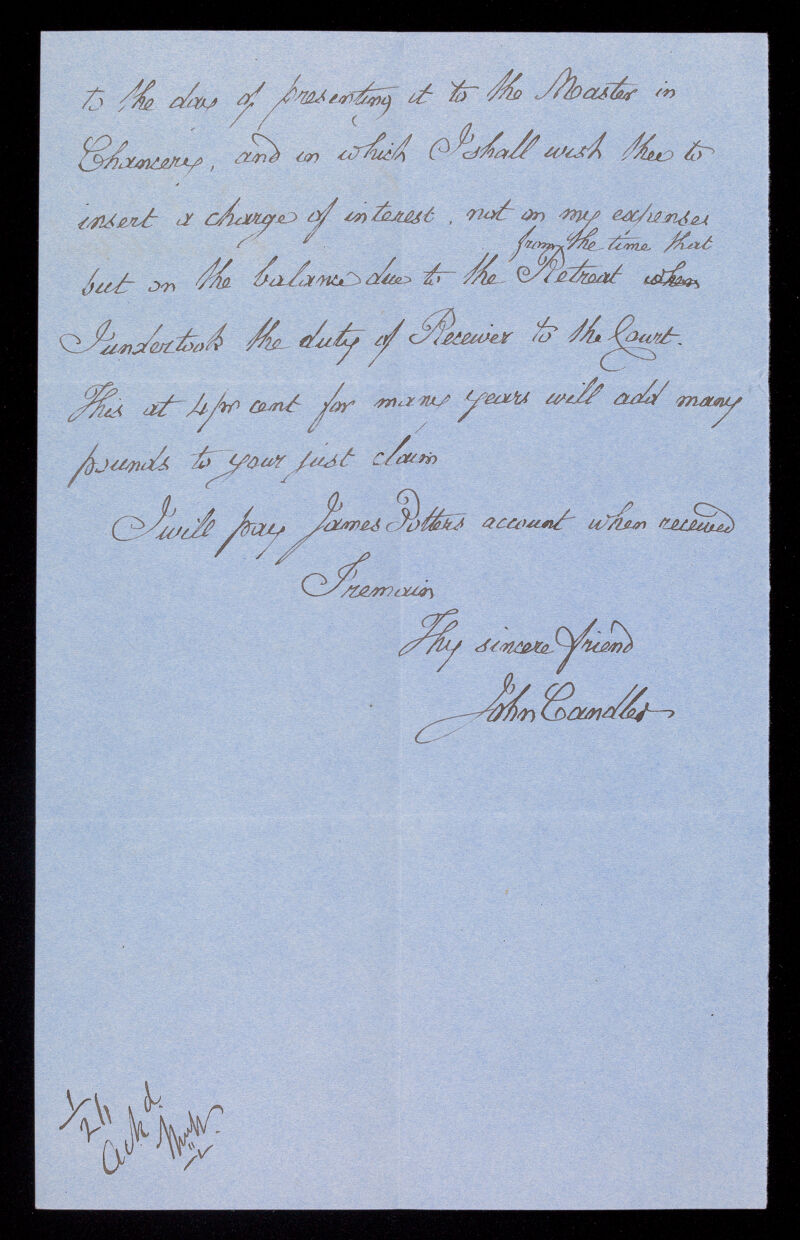 to the day of presenting it to the Master in
Chancery, and in which I shall wish thee to
insert a charge of interest, not on my expenses
from the time that
but on the balance due to the Retreat when
I undertook the duty of Receiver to the Court.
This at 4 pr cent for many years will add many
pounds to your just claim
I will pay James Potters account when received
I remain
Thy sincere friend
John Candler
1/24
Ackd.